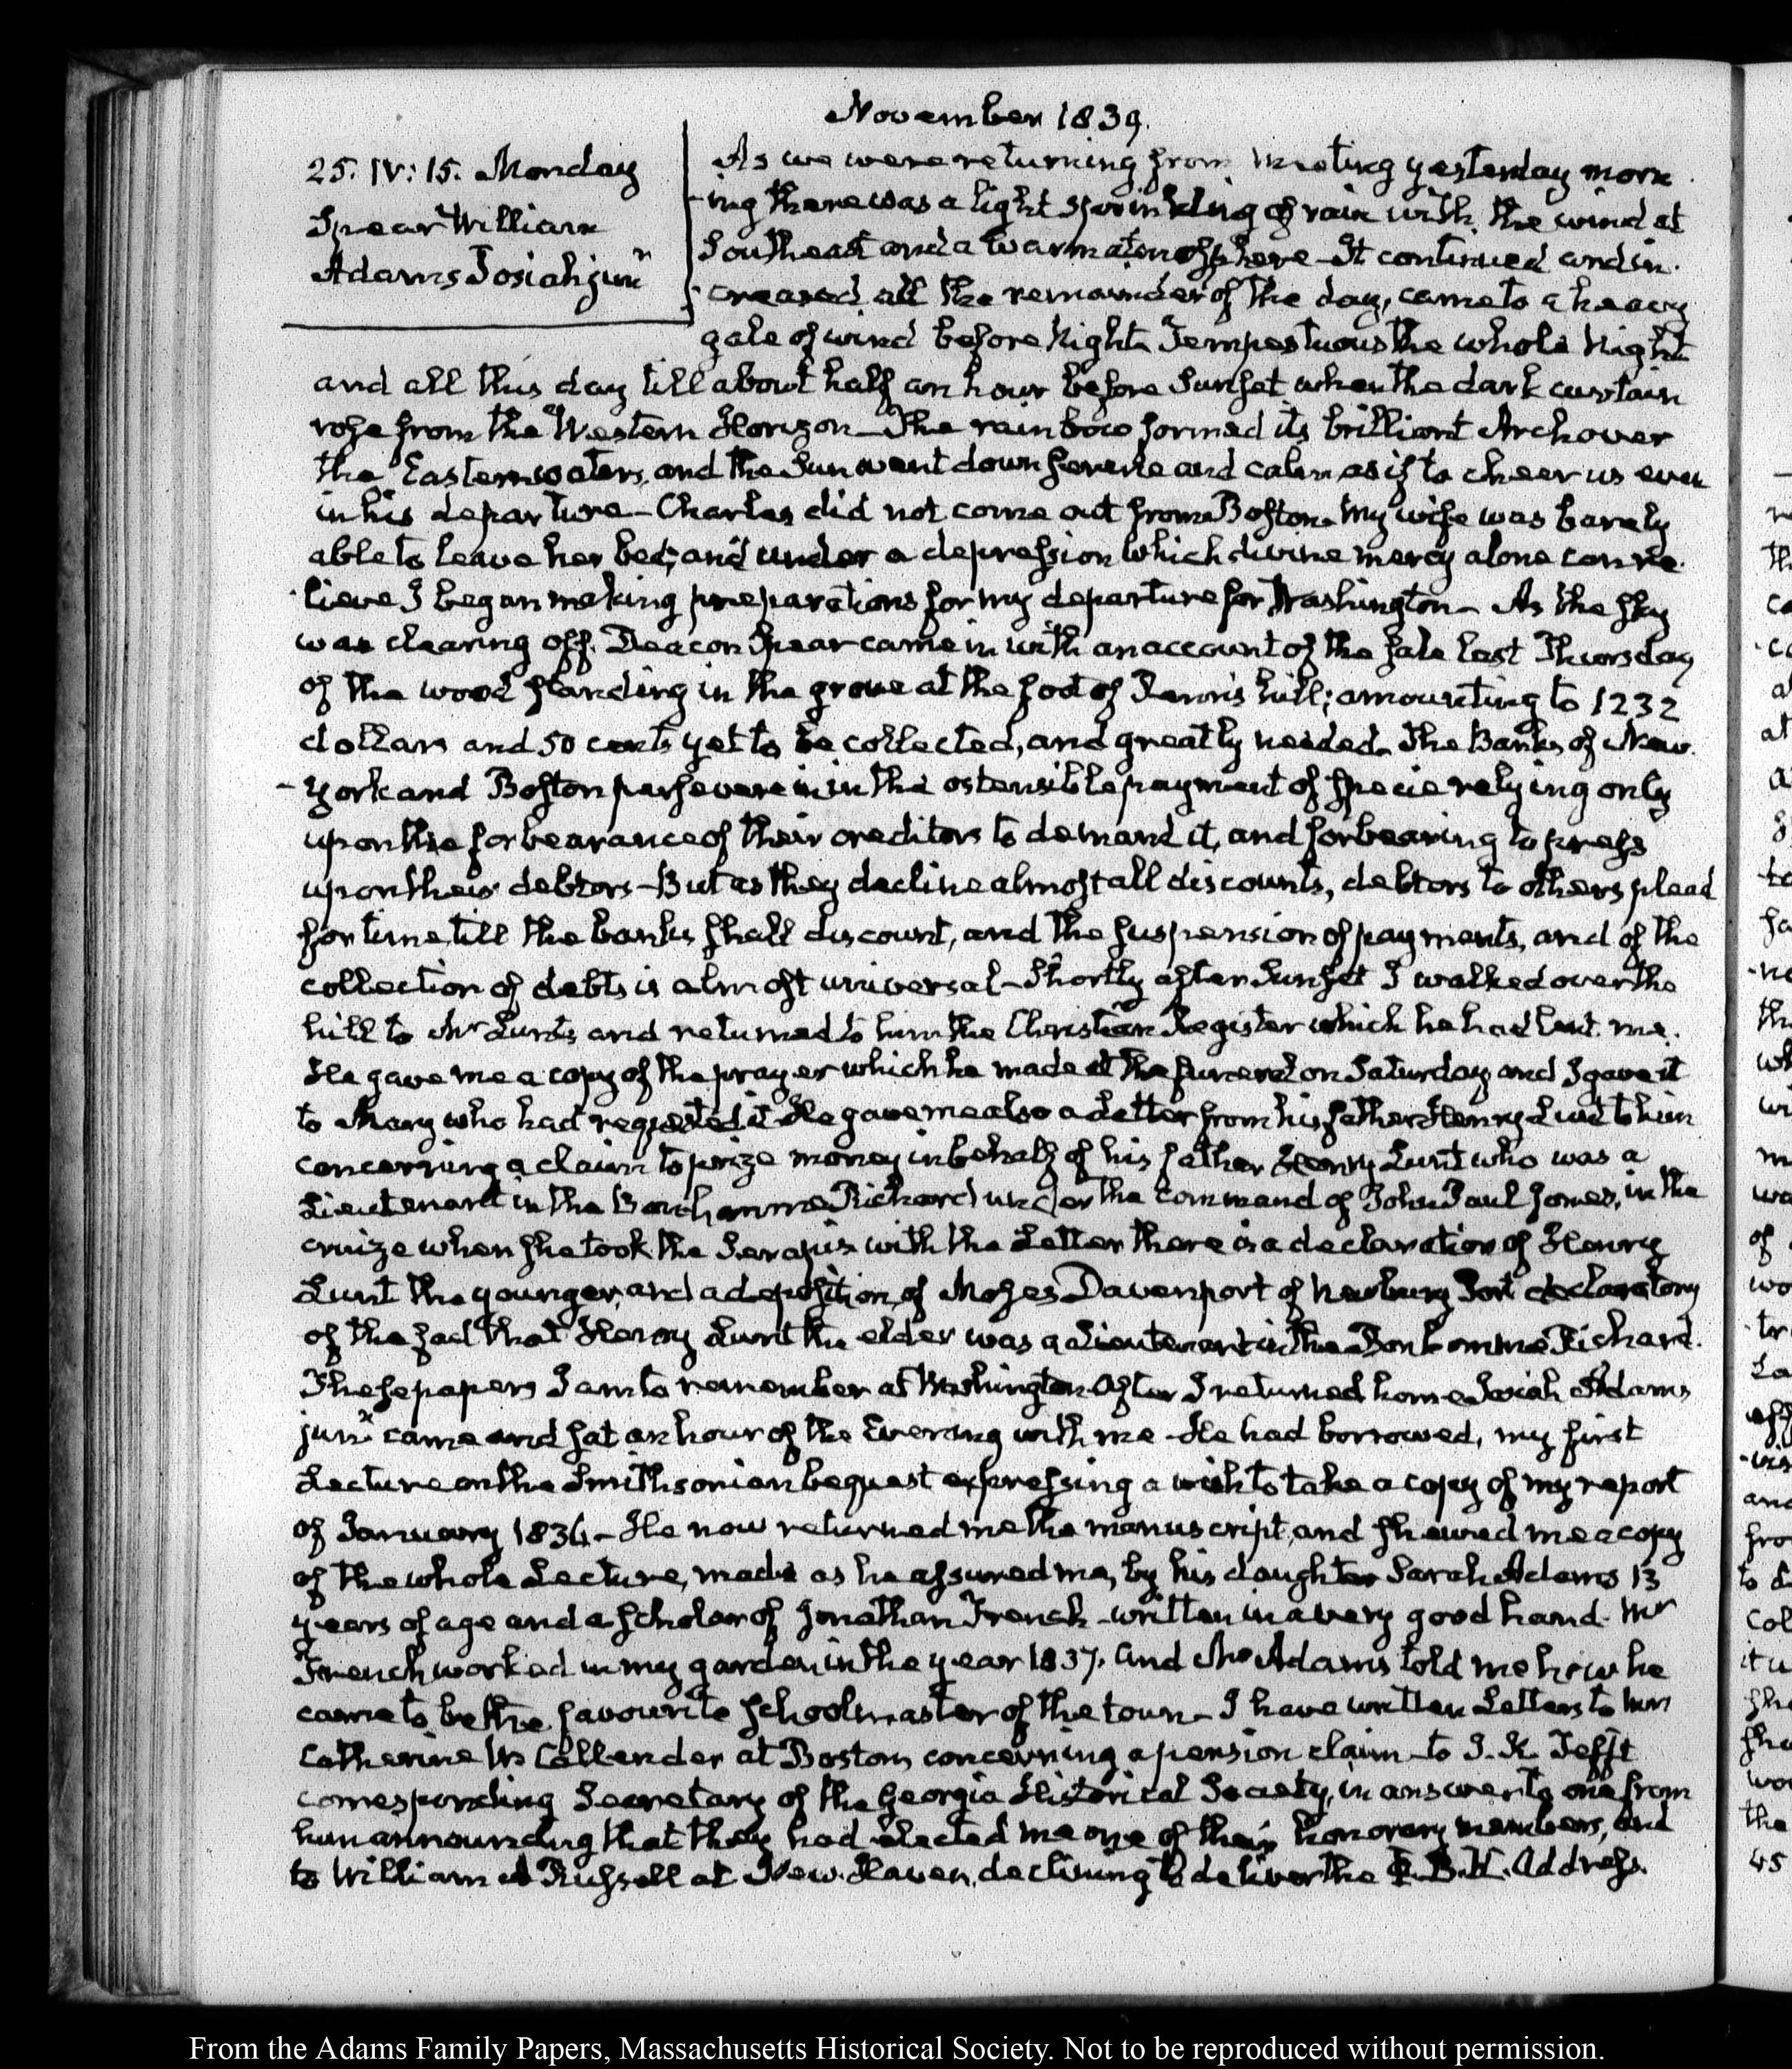 November 1839.
25. IV: 15. Monday
Spear William
Adams Josiah junr
As we were returning from Meeting yesterday morn
-ing there was a light sprinkling of rain with the wind at
Southeast and a warm atmosphere – It continued and in-
-creased all the remainder of the day, came to a heavy
gale of wind before Night. Tempestuous the whole Night
and all this day till about half an hour before Sunset when the dark curtain
rose from the Western Horizon – The rainbow formed its brilliant Arch over
the Eastern waters, and the Sun went down serene and calm as if to cheer us even
in his departure – Charles did not come out from Boston. My wife was barely
able to leave her bed; and under a depression which divine mercy alone can re-
-lieve I began making preparations for my departure for Washington – As the sky
was clearing off. Deacon Spear came in with an account of the sale last Thursday
of the wood standing in the grove at the foot of Penn's hill; amounting to 1232
dollars and 50 cents yet to be collected, and greatly needed. The Banks of New-
-York and Boston persevere in the ostensible payment of specie relying only
upon the forbearance of their creditors to demand it, and forbearing to press
upon their debtors – But as they decline almost all discounts, debtors to others plead
for time, till the banks shall discount, and the suspension of payments, and of the
collection of debts is almost universal – Shortly after Sunset I walked over the
hill to Mr Lunt's and returned to him the Christian Register which he had lent me.
He gave me a copy of the prayer which he made at the funeral on Saturday and I gave it
to Mary who had requested it. He gave me also a Letter from his father Henry Lunt to him
concerning a claim to prize money in behalf of his father Henry Lunt who was a
Lieutenant in the Bonhomme Richard under the command of John Paul Jones, in the
cruize when she took the Serapis with the Letter there is a declaration of Henry
Lunt the younger, and a deposition of Moses Davenport of Newbury Port declaratory
of the fact that Henry Lunt the elder was a Lieutenant in the Bonhomme Richard.
These papers I am to remember at Washington. After I returned home Josiah Adams
junr came and sat an hour of the Evening with me – He had borrowed, my first
Lecture on the Smithsonian bequest expressing a wish to take a copy of my report
of January 1836 – He now returned me the manuscript, and shewed me a copy
of the whole Lecture, made as he assured me, by his daughter Sarah Adams 13
years of age and a scholar of Jonathan French – written in a very good hand. Mr
French worked in my garden in the year 1837. and Mr Adams told me how he
came to be the favourite schoolmaster of the town – I have written Letters to
Catherine Callender at Boston, concerning a pension claim – to I. K. Tefft
corresponding Secretary of the Georgia Historical Society, in answer to one from
him announcing that they had elected me one of their honorary members, and
to William Russell at New-Haven, declining to deliver the Φ.B.K. Address.
From the Adams Family Papers, Massachusetts Historical Society. Not to be reproduced without permission.